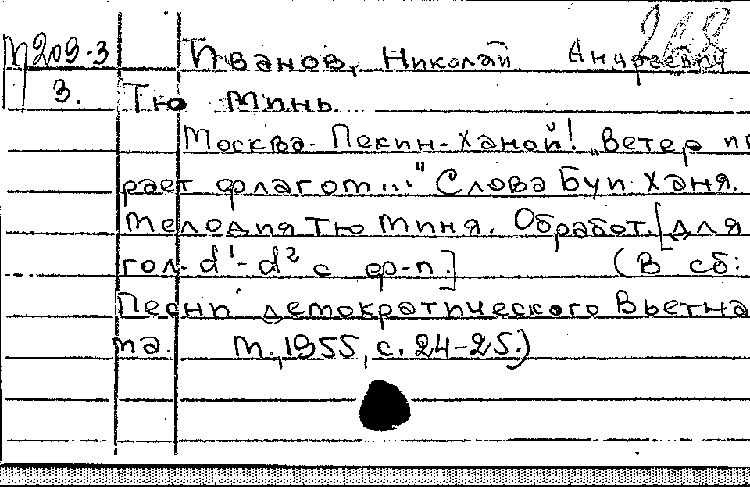 268
М209-3 Иванов, Николай Андреевич
3. Тю Минь
Москва-Пекин-Ханой! „Ветер иг
рает флагом..." Слова Буи Ханя.
Мелодия Тю Миня. Обработ. [для
гол. d¹-d² с ф-п.] (В сб:
Песни демократического Вьетна
ма. М., 1955, с. 24-25.)